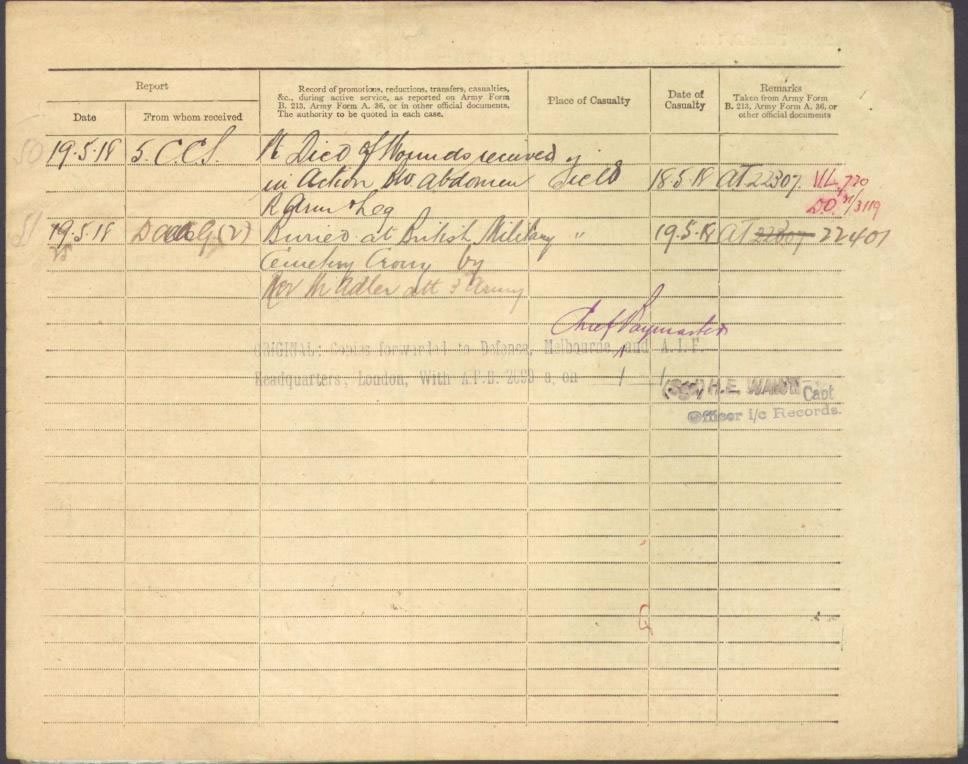 Report
Record of promotions, reductions, transfers, casualties,
&c., during active service, as reported on Army Form
B. 213, Army Form A. 36, or in other official documents.
The authority to be quoted in each case.
Place of Casualty
Date of
Casualty
Remarks
Taken from Army Form
B. 213, Army Form A. 36, or
other official documents
Date
From whom received
19.5.18 5. CCS. Died of Wounds received
in Action Abdomen Field 18.5.18 AT 22307. 770
R Arm & Leg D.O. 3119
19.5.18 (2) Buried at British Military " 19.5.18 AT 22307 22401
Cemetery Crouy by
Rev M Adler att 3 Army
Chief Paymaster
ORIGINAL: Copies forwarded to Defence, Melbourne, and A.I.F.
Headquarters, London, With A.F.B. a, on / /
(Sgd) H.E. Capt
Officer i/c Records.